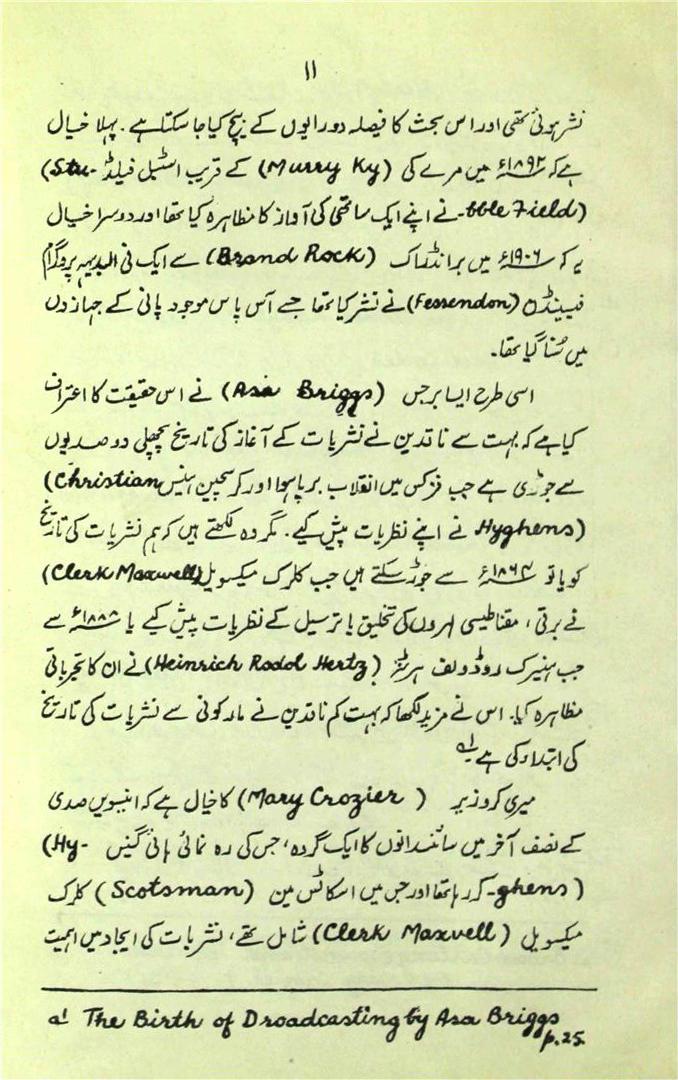 ۱۱
نشر ہوئی تھی اور اس بحث کا فیصلہ دو رایوں کے بیچ کیا جا سکتا ہے۔ پہلا خیال
ہے کہ ۱۸۹۲ء میں مرے کی (Murry Ky) کے قریب اسٹبل فیلڈ (Stu-
bble Field) نے اپنے ایک ساتھی کی آواز کا مظاہرہ کیا تھا اور دوسرا خیال
یہ کہ ۱۹۰۶ء میں برانڈراک (Brand Rock) سے ایک فی البدیہہ پروگرام
فیسینڈن (Fessendon) نے نشر کیا تھا جسے آس پاس موجود پانی کے جہازوں
میں سُنا گیا تھا۔
اسی طرح ایسا برجس (Asa Briggs) نے اس حقیقت کا اعتراف
کیا ہے کہ بہت سے ناقدین نے نشریات کے آغاز کی تاریخ پچھلی دو صدیوں
سے جوڑی ہے جب فزکس میں انقلاب برپا ہوا اور کرسچین ہینس (Christian
Hyghens) نے اپنے نظریات پیش کیے۔ مگر وہ لکھتے ہیں کہ ہم نشریات کی تاریخ
کو یا تو ۱۸۶۴ء سے جوڑ سکتے ہیں جب کلرک میکسویل (Clerk Maxwell)
نے برقی، مقناطیسی لہروں کی تخلیق یا ترسیل کے نظریات پیش کیے یا ۱۸۸۸ء سے
جب ہنیرک روڈولف ہرٹز (Heinrich Rodol Hertz) نے ان کا تجرباتی
مظاہرہ کیا۔ اس نے مزید لکھا کہ بہت کم ناقدین نے مارکونی سے نشریات کی تاریخ
کی ابتداء کی ہے a1
میری کروزیر (Mary Crozier) کا خیال ہے کہ انیسویں صدی
کے نصف آخر میں سائنسدانوں کا ایک گروہ، جس کی رہ نمائی ہائی گینس (Hy-
ghens) کر رہا تھا اور جس میں اسکاٹس مین (Scotsman) کلرک
میکسویل (Clerk Maxwell) شامل تھے، نشریات کی ایجاد میں اہمیت
a1 The Birth of Droadcasting by Asa Briggs
p.25.